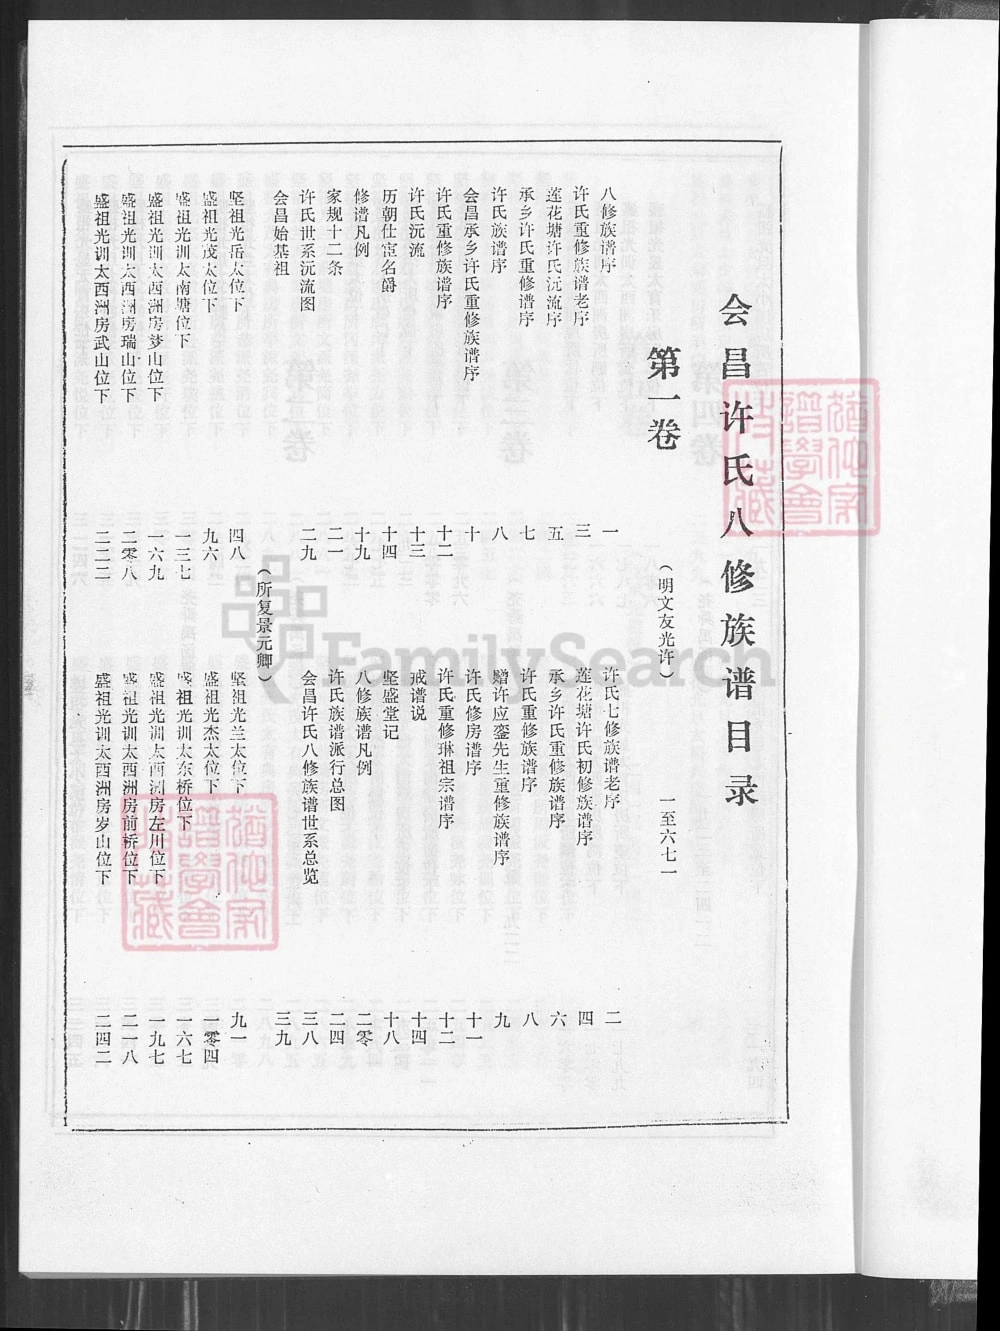 会昌许氏八修族谱目录
第一卷
（明文友光许）
一至六七一
八修族谱序 一
许氏七修族谱老序 二
许氏重修族谱老序 三
莲花塘许氏初修族谱序 四
莲花塘许氏沅流序 五
承乡许氏重修族谱序 六
承乡许氏重修谱序 七
许氏重修族谱序 八
许氏族谱序 八
赠许应銮先生重修族谱序 九
会昌承乡许氏重修族谱序 十
许氏修房谱序 十一
许氏重修族谱序 十二
许氏重修琳祖宗谱序 十二
许氏沅流 十三
戒谱说 十四
历朝仕宦名爵 十四
坚盛堂记 十八
修谱凡例 十九
八修族谱凡例 二零
家规十二条 二一
许氏族谱派行总图 二四
许氏世系沅流图 二九
会昌许氏八修族谱世系总览 三八
会昌始基祖
（所复景元卿） 三九
坚祖光岳太位下 四八
坚祖光兰太位下 九一
盛祖光茂太位下 九六
盛祖光杰太位下 一零四
盛祖光训太南塘位下 一三七
盛祖光训太东桥位下 一六七
盛祖光训太西洲房梦山位下 一六九
盛祖光训太西洲房左川位下 一九七
盛祖光训太西洲房瑞山位下 二零八
盛祖光训太西洲房前桥位下 二一八
盛祖光训太西洲房武山位下 二二二
盛祖光训太西洲房岁山位下 二四二
FamilySearch